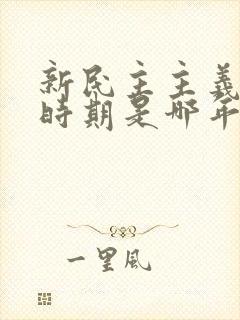 新民主主義
時期是哪年
一里風